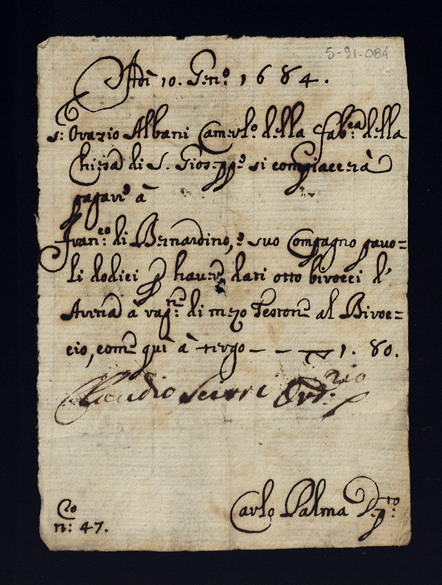 5-91-084
Adì 10. Gen.º 1684.
S: Orazio Albani Camerl.º della Fab.ca della
Chiesa di S. Gios.ppe si compiacerà
pagare à
Fran.co di Bernardino, e suo Compagno pavo-
li dodici p haver dati otto birocci d'
Arena à rag.ne di mezo Testone al Biroc-
cio, come quì à tergo — — 1. 80.
Claudio
Carlo Palma
n: 47.